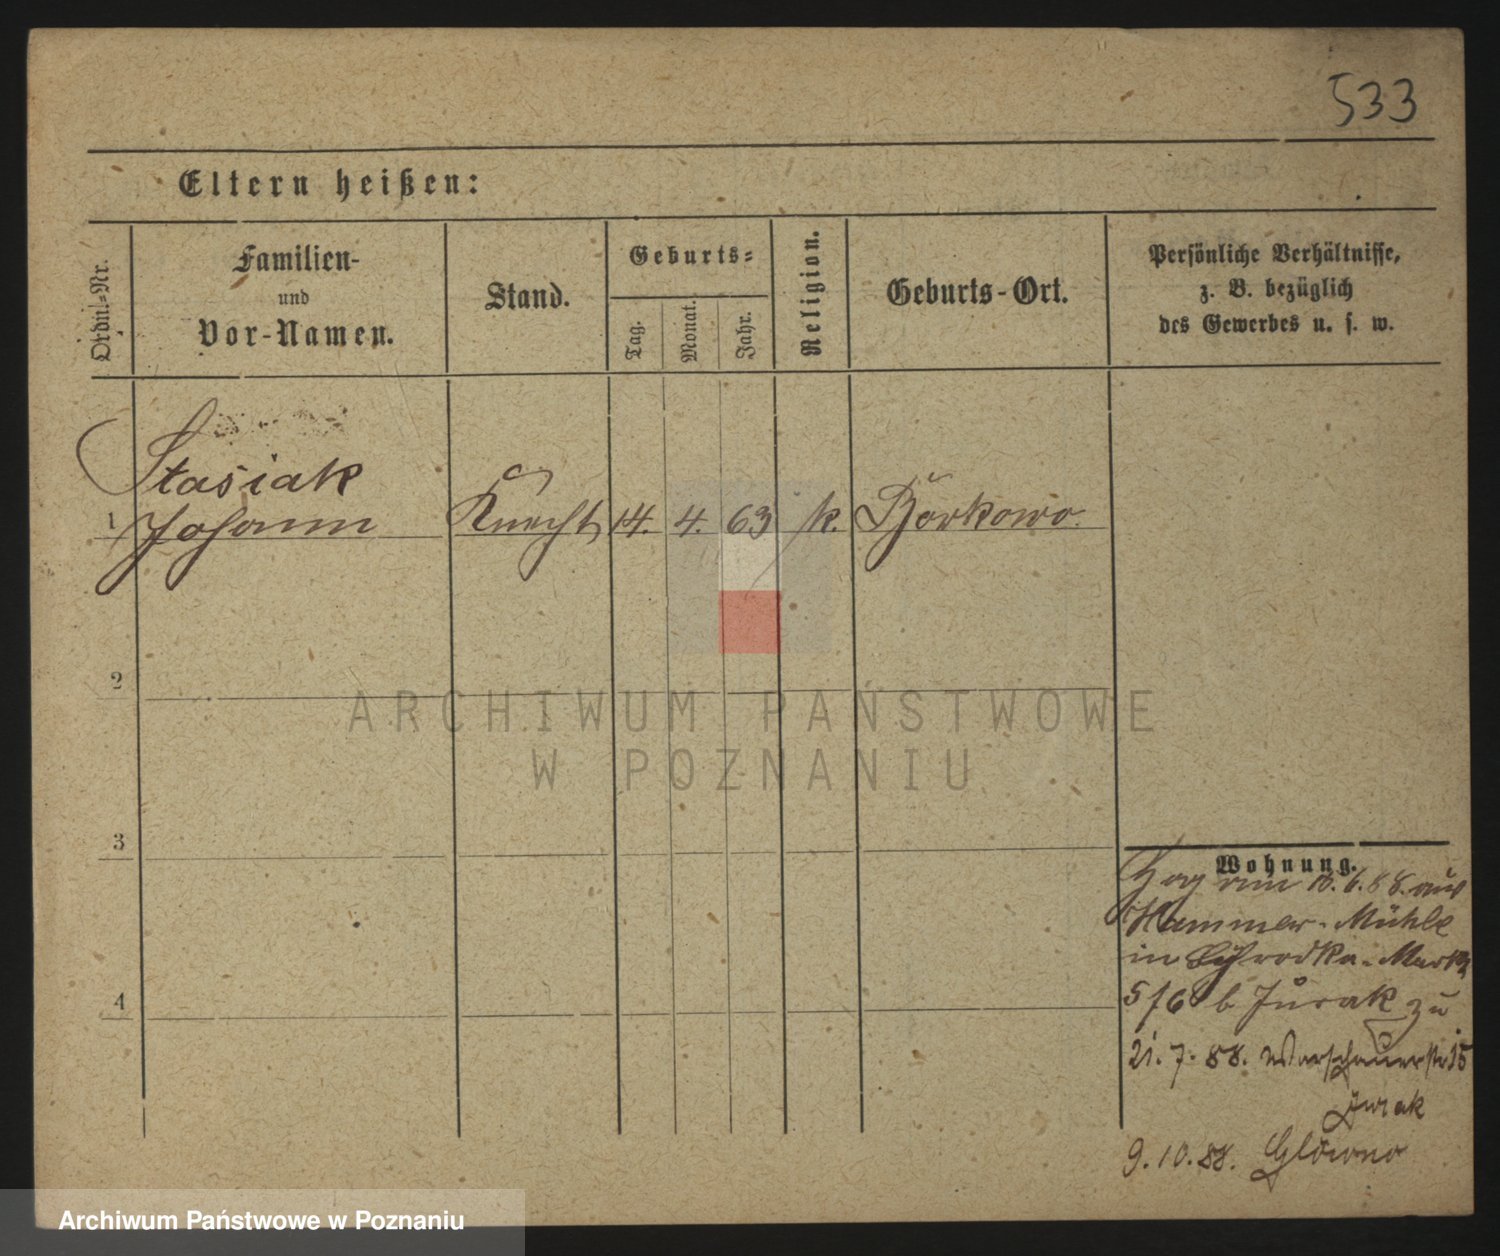 533
Eltern heißen:
Ordnl.-Nr.
Familien-
und
Vor-Namen.
Stand.
Geburts-
Tag.
Monat.
Jahr.
Religion.
Geburts-Ort.
Persönliche Verhältnisse,
z. B. bezüglich
des Gewerbes u. s. w.
Stasiak
1 Johann Knecht 14. 4. 63 k. Borkowo.
2
ARCHIWUM PAŃSTWOWE
W POZNANIU
3
Wohnung.
Zog am 18.6.88. aus
Hammer-Mühle
in Schrodka-Markt
5/6 b Jurak zu
21.7.88. Warschauerstr 15
Jurak
4
9.10.88. Glowno
Archiwum Państwowe w Poznaniu